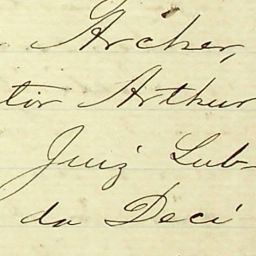 Archer,
tor Arthur
Juiz Sub-
da Deci